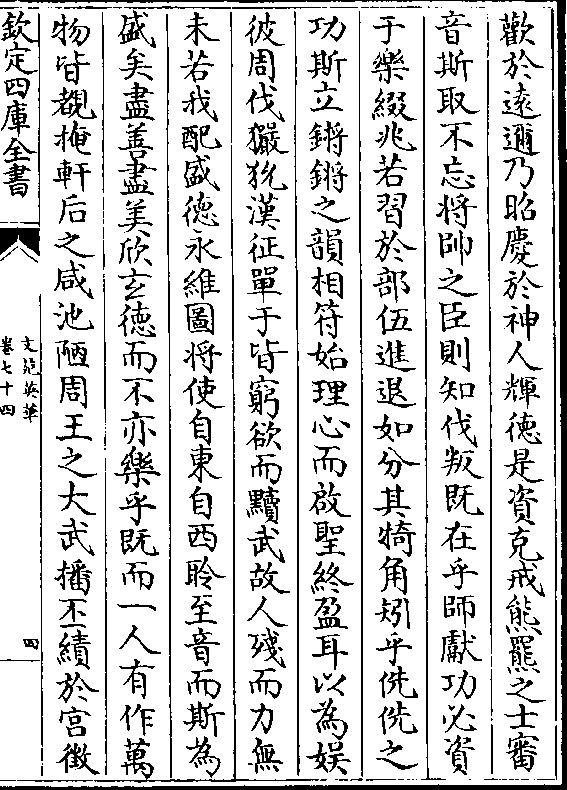 歡於遠邇乃昭慶於神人輝德是資克戒熊羆之士審
音斯取不忘将帥之臣則知伐叛既在乎師獻功必資
于樂綴兆若習於部伍進退如分其犄角矧乎侁侁之
功斯立鏘鏘之韻相符始理心而啟聖終盈耳以為娱
彼周伐玁狁漢征單于皆窮欲而黷武故人殘而力無
未若我配盛德永維圖将使自東自西聆至音而斯為
盛矣盡善盡美欣玄徳而不亦樂乎既而一人有作萬
物皆覩掩軒后之咸池陋周王之大武播丕績於宫徴
欽定四庫全書
文苑英華
卷七十四
四